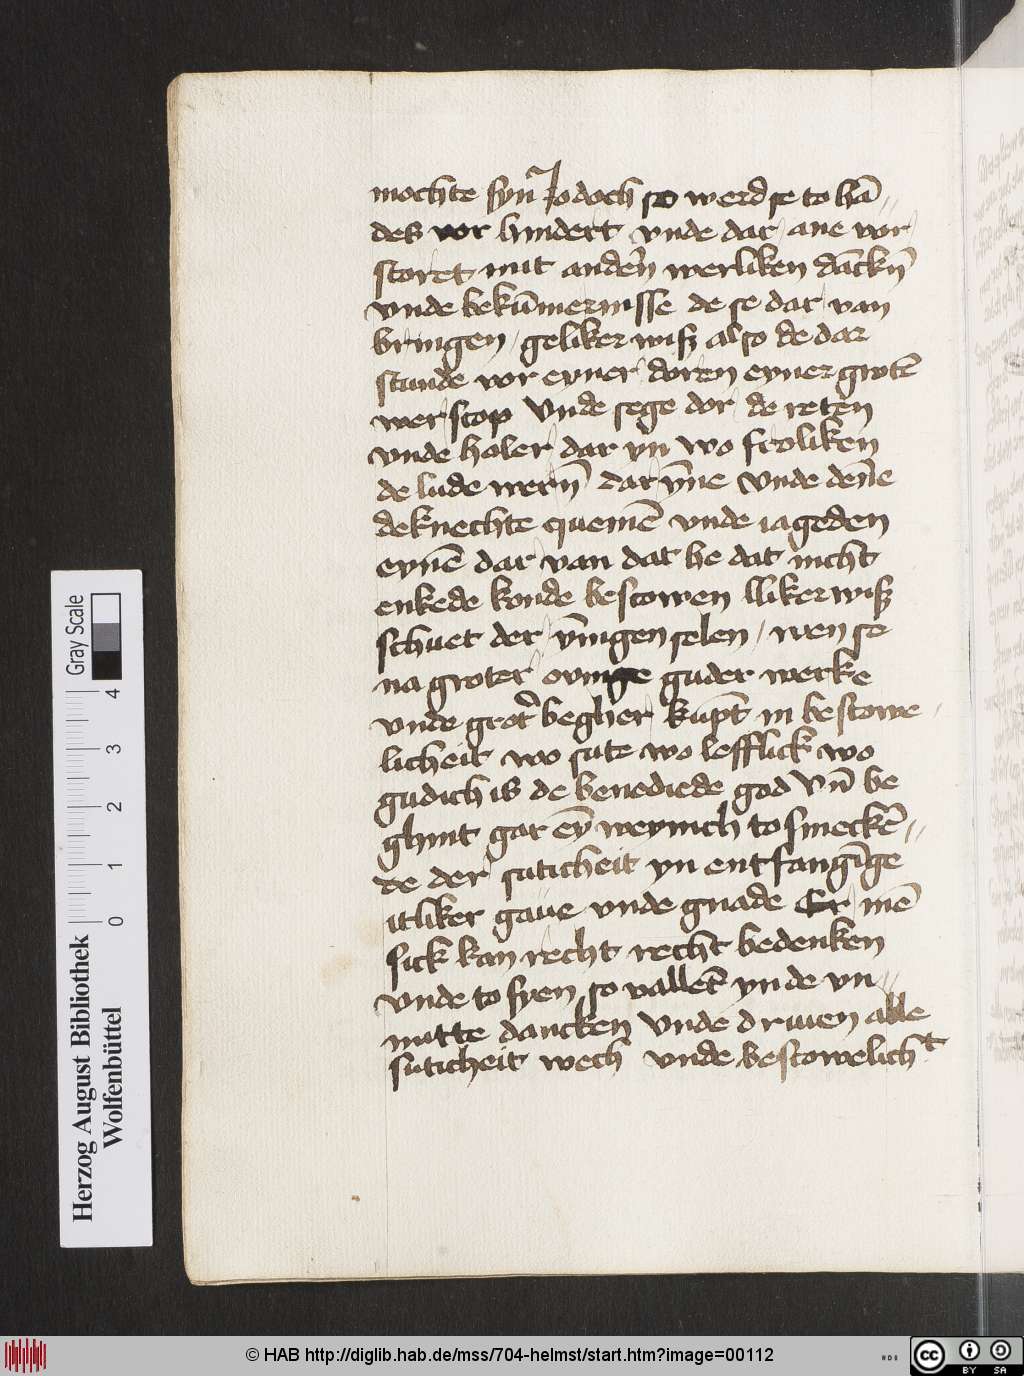 mochte syn̄ Jodoch so werd se to hā=
des vor hindert vnde dar ane vor
storet mit andern̄ werliken dāckn̄
vnde bekūmernisse de se dar van
bringen / geliker wiß also de dar
stunde vor eyner doren eyner grotē
werscop Vnde sege dor de reten
vnde holer dar yn wo froliken
de lude wern̄ dar ȳne vnde den̄e
deknechte quemē vnde iageden
eynē dar van dat he dat nicht
enkede konde bescowen lliker wiß
schuet der ȳnigen selen / wen se
na groter ovinge guder werke
vnde grot' begher kūpt in bescowe=
licheit wo sute wo lefflick wo
gudich is de benedide god Vn̄ be
ghint gar eȳ weynich to smeckē=
de der suticheit yn entfangīge
itliker gaue vnde gnade Er mē
sick kan recht recht bedenken
vnde to syen so vallet ynde vn=
nutte dancken Vnde driuen alle
suticheit wech vnde bescowelicht
Gray Scale
0 1 2 3 4
Herzog August Bibliothek
Wolfenbüttel
© HAB http://diglib.hab.de/mss/704-helmst/start.htm?image=00112
cc BY SA